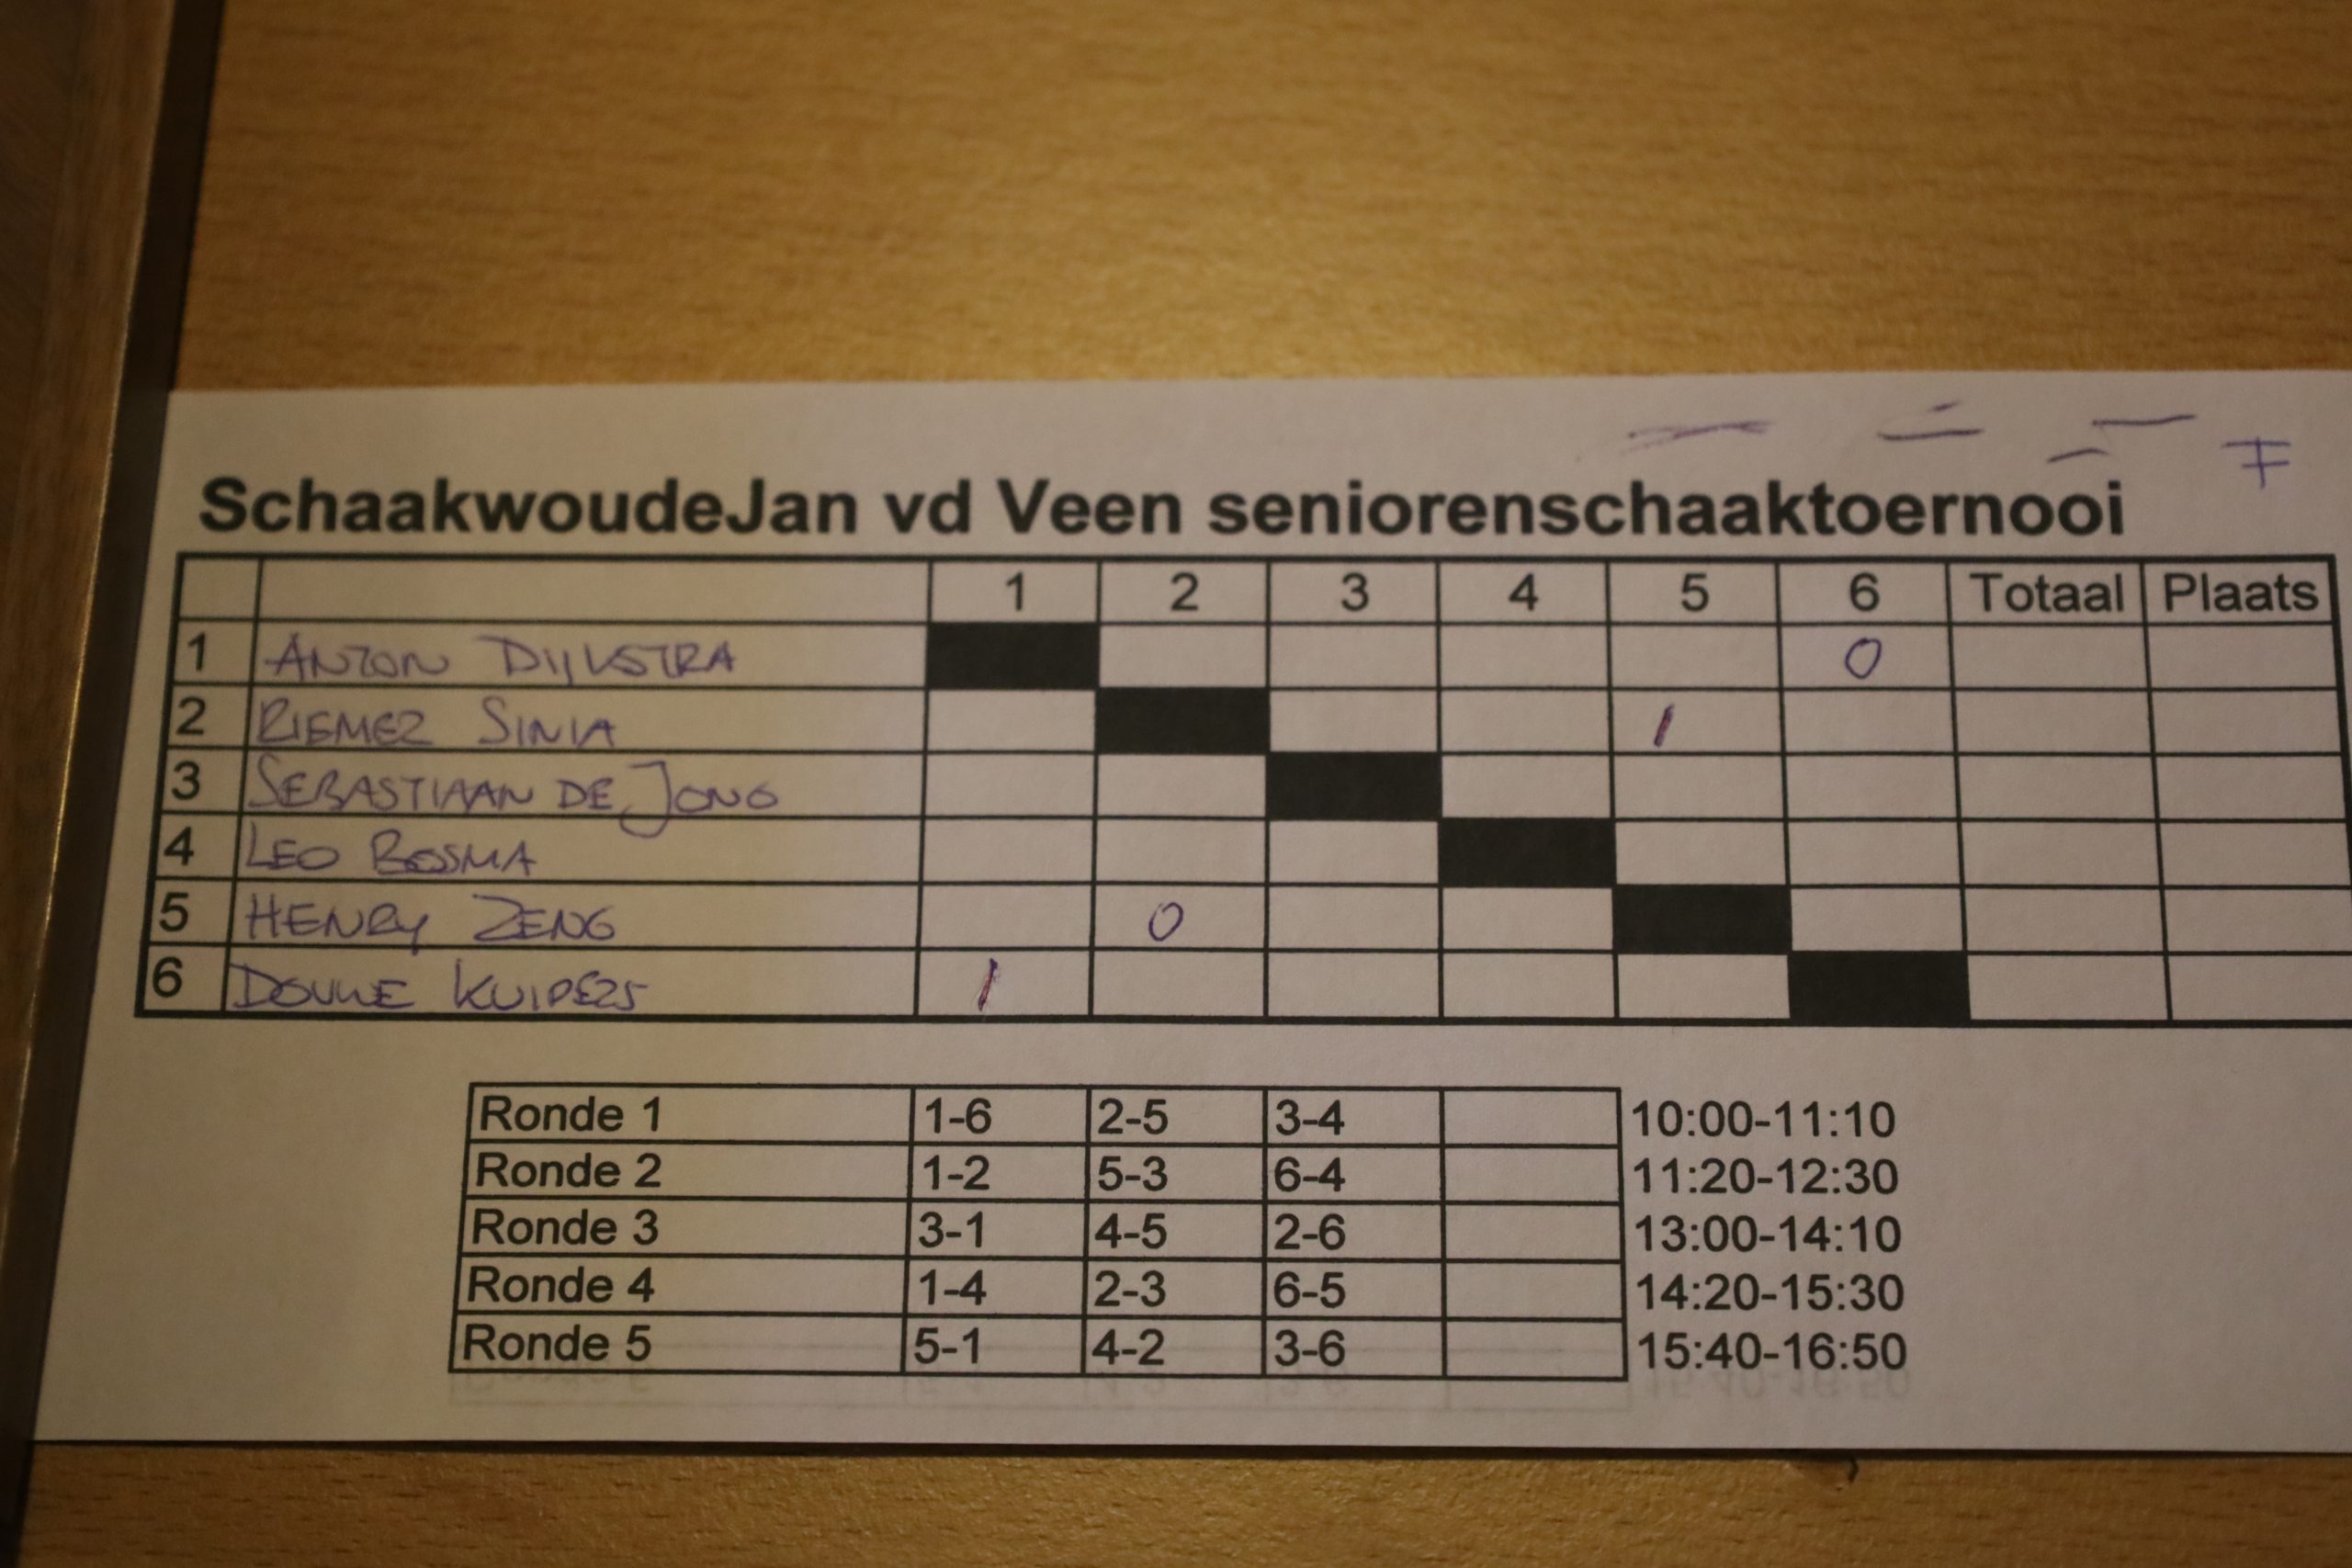 SchaakwoudeJan vd Veen seniorenschaaktoernooi
1 2 3 4 5 6 Totaal Plaats
1 ANTON DIJKSTRA 0
2 RIEMER SINIA 1
3 SEBASTIAAN DE JONG
4 LEO BOSMA
5 HENRY ZENG 0
6 DOUWE KUIPERS 1
Ronde 1 1-6 2-5 3-4 10:00-11:10
Ronde 2 1-2 5-3 6-4 11:20-12:30
Ronde 3 3-1 4-5 2-6 13:00-14:10
Ronde 4 1-4 2-3 6-5 14:20-15:30
Ronde 5 5-1 4-2 3-6 15:40-16:50